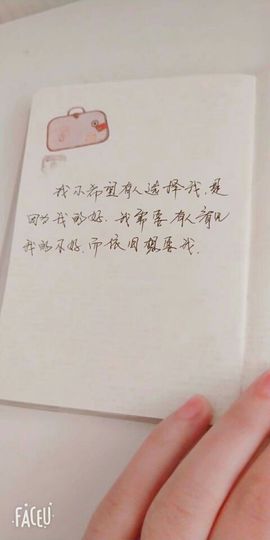 我不希望有人选择我,是
因为我的好.我需要有人看见
我的不好,而依旧想要我.
FACEU